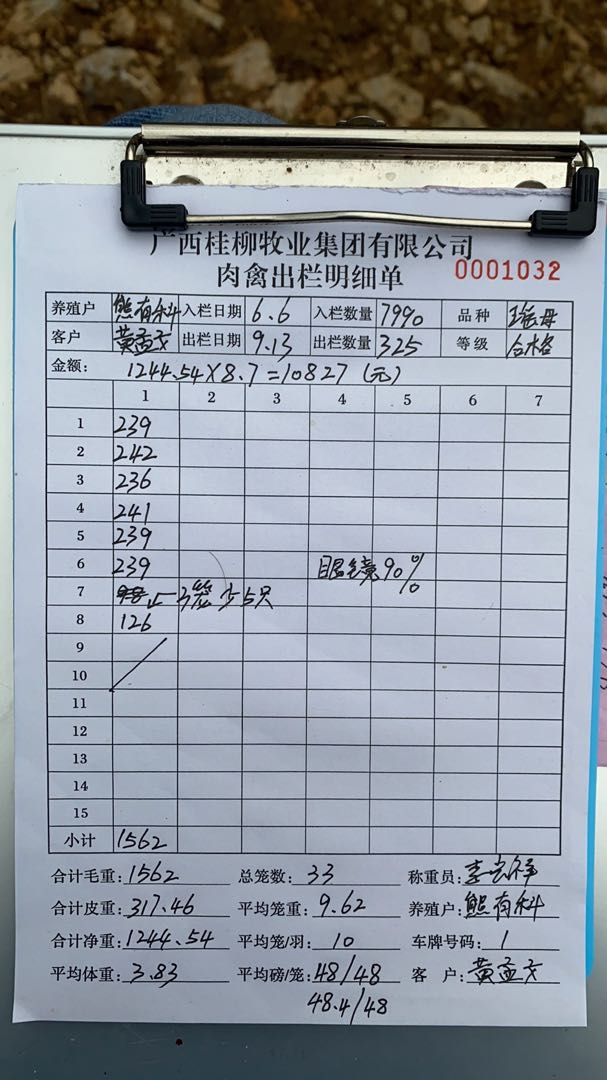 广西桂柳牧业集团有限公司
肉禽出栏明细单 0001032
养殖户 熊有科 入栏日期 6.6 入栏数量 7990 品种 瑶母
客户 黄孟戈 出栏日期 9.13 出栏数量 325 等级 合格
金额: 1244.54×8.7=10827(元)
1 2 3 4 5 6 7
1 239
2 242
3 236
4 241
5 239
6 239 眼镜90%
7 笼少5只
8 126
9
10
11
12
13
14
15
小计 1562
合计毛重:1562 总笼数:33 称重员:李宏祥
合计皮重:317.46 平均笼重:9.62 养殖户:熊有科
合计净重:1244.54 平均笼/羽:10 车牌号码:1
平均体重:3.83 平均磅/笼:48/48 客户:黄孟戈
48.4/48